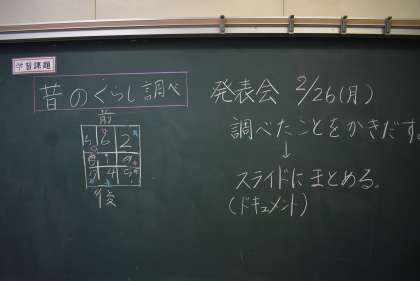 学習課題
昔のくらし調べ
前
後
発表会 2/26(月)
調べたことをかきだす。
↓
スライドにまとめる。
(ドキュメント)